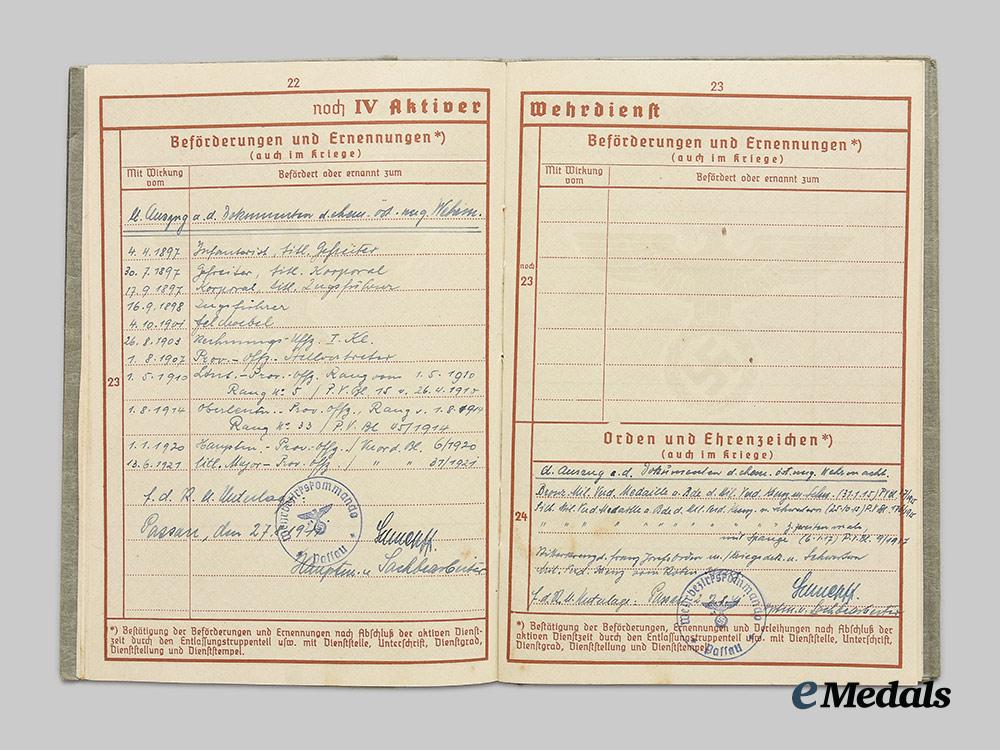 22
noch IV Aktiver
Beförderungen und Ernennungen*)
(auch im Kriege)
Mit Wirkung vom
Befördert oder ernannt zum
Auszug a. d. Dokumenten d. ehem. öst. ung. Wehrm.
4. 4. 1897 Infanterist, titl. Gefreiter
30. 7. 1897 Gefreiter, titl. Korporal
17. 9. 1897 Korporal, titl. Zugsführer
16. 9. 1898 Zugsführer
4. 10. 1901 Feldwebel
26. 8. 1903 Rechnungs-Uffz. I. Kl.
1. 8. 1907 Prov.-Offz. Stellvertreter
23
1. 5. 1910 Leut.-Prov.-Offz. Rang vom 1. 5. 1910
Rang No 5 / P.V. Bl. 15 v. 26. 4. 1910
1. 8. 1914 Oberleutn. Prov. Offz., Rang v. 1. 8. 1914
Rang No 33 / P.V. Bl. 45/1914
1. 1. 1920 Hauptm.- Prov.-Offz. / Bl. 6/1920
13. 6. 1921 titl. Major- Prov. Offz. / " " 31/1921
f. d. R. d. Unterlage:
Passau, den 27.
Hauptm. u. Sachbearbeiter
Wehrbezirkskommando
Passau
*) Bestätigung der Beförderungen und Ernennungen nach Abschluß der aktiven Dienst-
zeit durch den Entlassungstruppenteil usw. mit Dienststelle, Unterschrift, Dienstgrad,
Dienststellung und Dienststempel.
23
Wehrdienst
Beförderungen und Ernennungen*)
(auch im Kriege)
Mit Wirkung vom
Befördert oder ernannt zum
noch
23
Orden und Ehrenzeichen*)
(auch im Kriege)
d. Auszug a. d. Dokumenten d. ehem. öst. ung. Wehrmacht.
Bronz. Mil. Verd. Medaille a. Bde d. Mil. Verd. Kreuz m. Schw. (31.1.15)
24
" " " " " " " " " " zweiten male
mit Spange (6.1.17) P.V. Bl. 9/1917
Ritterkreuz d. Franz Josefs Orden m. Kriegsdek. u. Schwerter
f. d. R. d. Unterlage. Passau
Hptm. u. Sachbearbeiter
Wehrbezirkskommando
Passau
*) Bestätigung der Beförderungen, Ernennungen und Verleihungen nach Abschluß der
aktiven Dienstzeit durch den Entlassungstruppenteil usw. mit Dienststelle, Unterschrift,
Dienstgrad, Dienststellung und Dienststempel.
eMedals